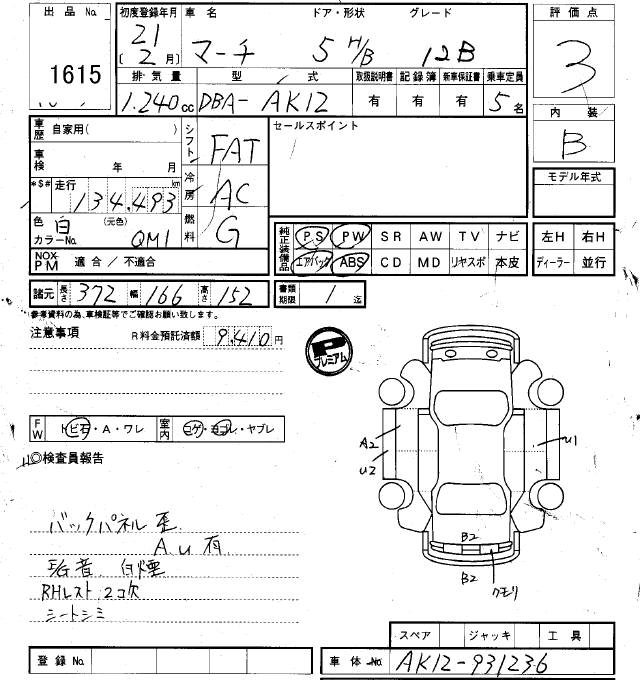 出品No. 初度登録年月 車名 ドア・形状 グレード 評価点
1615 21 [2月] マーチ 5 H/B 12B 3
排気量 型式 取扱説明書 記録簿 新車保証書 乗車定員
1.240cc DBA- AK12 有 有 有 5名
内装
B
モデル年式
車歴 自家用( ) シフト FAT セールスポイント
車検 年 月 冷房 AC
*$# 走行 134,493 km
色 白 (元色) 燃料 G
カラーNo. QM1
NOX・PM 適合 / 不適合
純正装備品 PS PW SR AW TV ナビ 左H 右H
エアバッグ ABS CD MD リヤスポ 本皮 ディーラー 並行
諸元 長さ 372 幅 166 高さ 152 書類期限 1 迄
参考資料の為、車検証等でご確認お願い致します。
注意事項 R料金預託済額 9,410円
プレミアム
FW トビ石・A・ワレ 室内 コゲ・ヨゴレ・ヤブレ
◎検査員報告
A2 U1
U2
バックパネル歪
AU有
音、白煙
RHレスト 2コ欠
シートシミ
B2
B2 クモリ
スペア ジャッキ 工具
登録No. 車体No. AK12-931236